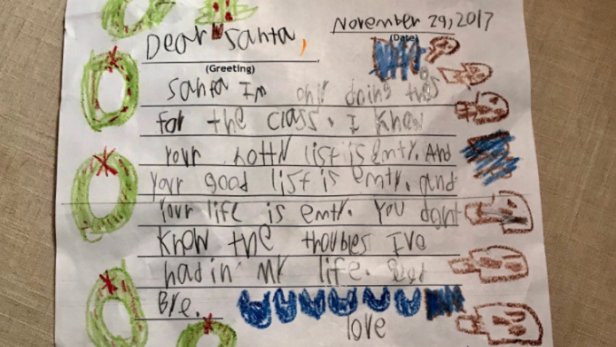 November 29, 2017
(Date)
Dear Santa,
(Greeting)
Santa Im only doing this
for the class. I Know
your notty list is emty. And
your good list is emty. and
Your life is emty. You dont
Know the troubles Ive
had in my life. Good
Bye.
love